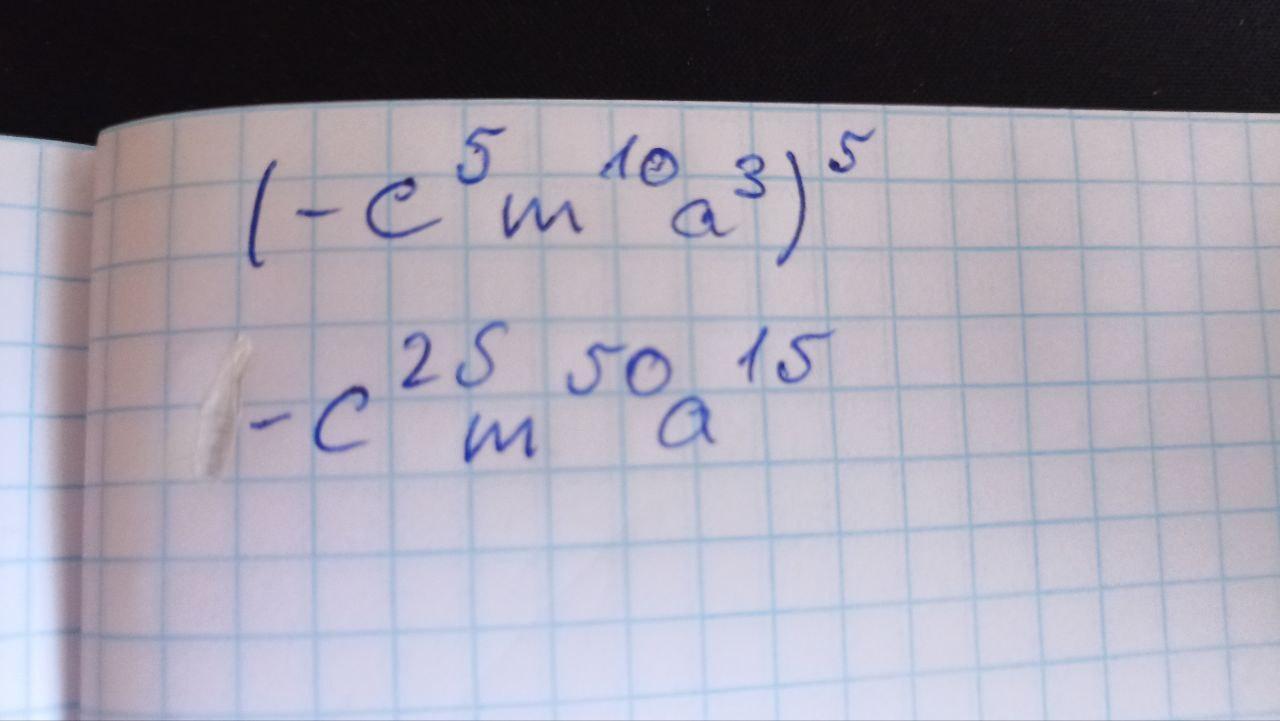 (-c⁵m¹⁰a³)⁵
-c²⁵m⁵⁰a¹⁵